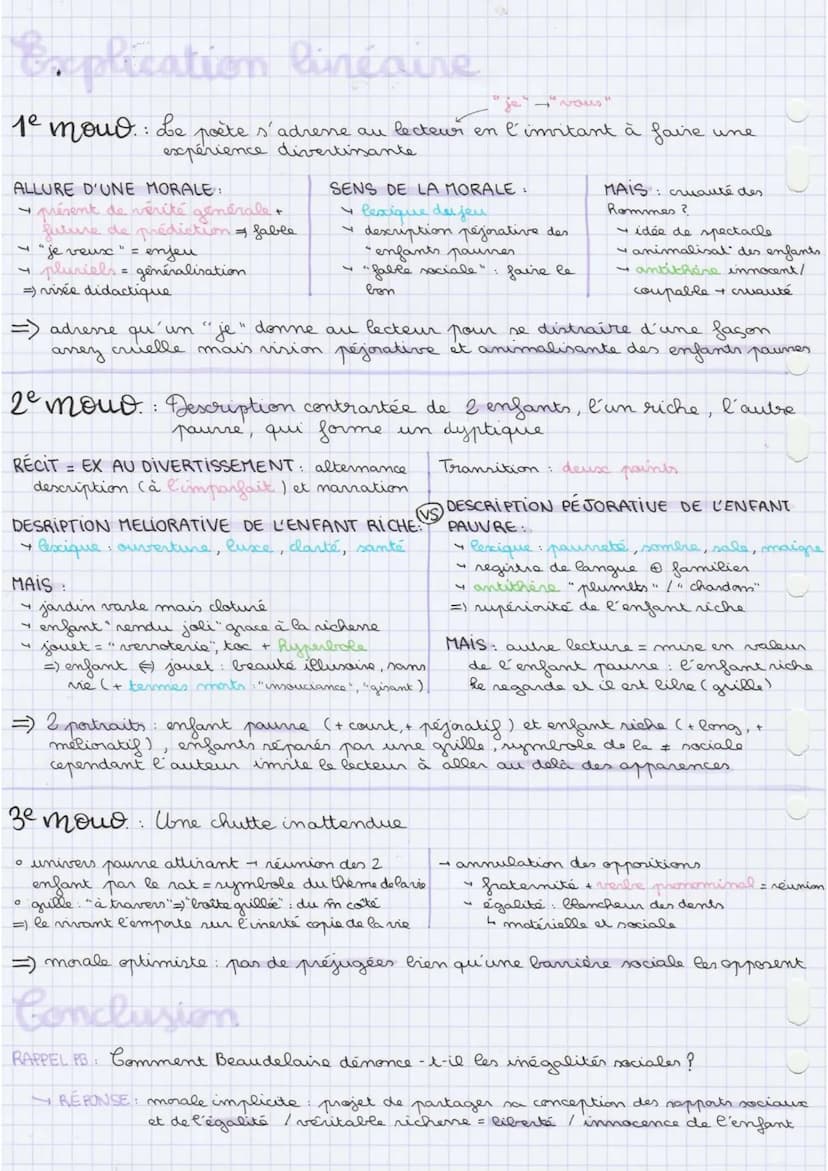 Explication linéaire
"je" → "vous"
1e mouv. : Le poète s'adresse au lecteur en l'invitant à faire une
expérience divertissante
ALLURE D'UNE MORALE :
→ présent de vérité générale +
future de prédiction ⇒ fable
→ "je veux" = enjeu
→ pluriels = généralisation
⇒ visée didactique
SENS DE LA MORALE :
→ lexique du jeu
→ description péjorative des
"enfants pauvres
→ "fable sociale" : faire le
bon
MAIS : cruauté des
hommes ?
→ idée de spectacle
→ animalisat° des enfants
→ antithèse innocent/
coupable → cruauté
⇒ adresse qu'un "je" donne au lecteur pour se distraire d'une façon
assez cruelle mais vision péjorative et animalisante des enfants pauvres
2e mouv. : Description contrastée de 2 enfants, l'un riche, l'autre
pauvre, qui forme un dyptique
RÉCIT = EX AU DIVERTISSEMENT : alternance
description (à l'imparfait) et narration
DESRIPTION MELIORATIVE DE L'ENFANT RICHE :
→ lexique : ouverture, luxe, clarté, santé
MAIS :
→ jardin vaste mais cloturé
→ enfant "rendu joli" grace à la richesse
→ jouet = "verroterie", toc + hyperbole
⇒ enfant ⇔ jouet : beauté illusoire, sans
vie (+ termes morts : "insouciance", "gisant")
VS
Transition : deux points
DESCRIPTION PÉJORATIVE DE L'ENFANT
PAUVRE :
→ lexique : pauvreté, sombre, sale, maigre
→ registre de langue ⊕ familier
→ antithèse "plumets" / "chardons"
⇒ supériorité de l'enfant riche
MAIS : autre lecture = mise en valeur
de l'enfant pauvre : l'enfant riche
le regarde et il est libre (grille)
⇒ 2 portraits : enfant pauvre (+ court, + péjoratif) et enfant riche (+ long, +
mélioratif), enfants séparés par une grille, symbole de la ≠ sociale
cependant l'auteur invite le lecteur à aller au delà des apparences
3e mouv. : Une chutte inattendue
° univers pauvre attirant → réunion des 2
enfant par le rat = symbole du thème de la vie
° grille : "à travers" ⇒ "boîte grillée" : du m̂ coté
⇒ le vivant l'emporte sur l'inerté copie de la vie
→ annulation des oppositions
→ fraternité + verbe pronominal = réunion
→ égalité : blancheur des dents
↳ matérielle et sociale
⇒ morale optimiste : pas de préjugées bien qu'une barrière sociale les opposent
Conclusion
RAPPEL PB : Comment Beaudelaire dénonce-t-il les inégalités sociales ?
→ RÉPONSE : morale implicite : projet de partager sa conception des rapports sociaux
et de l'égalité / véritable richesse = liberté / innocence de l'enfant